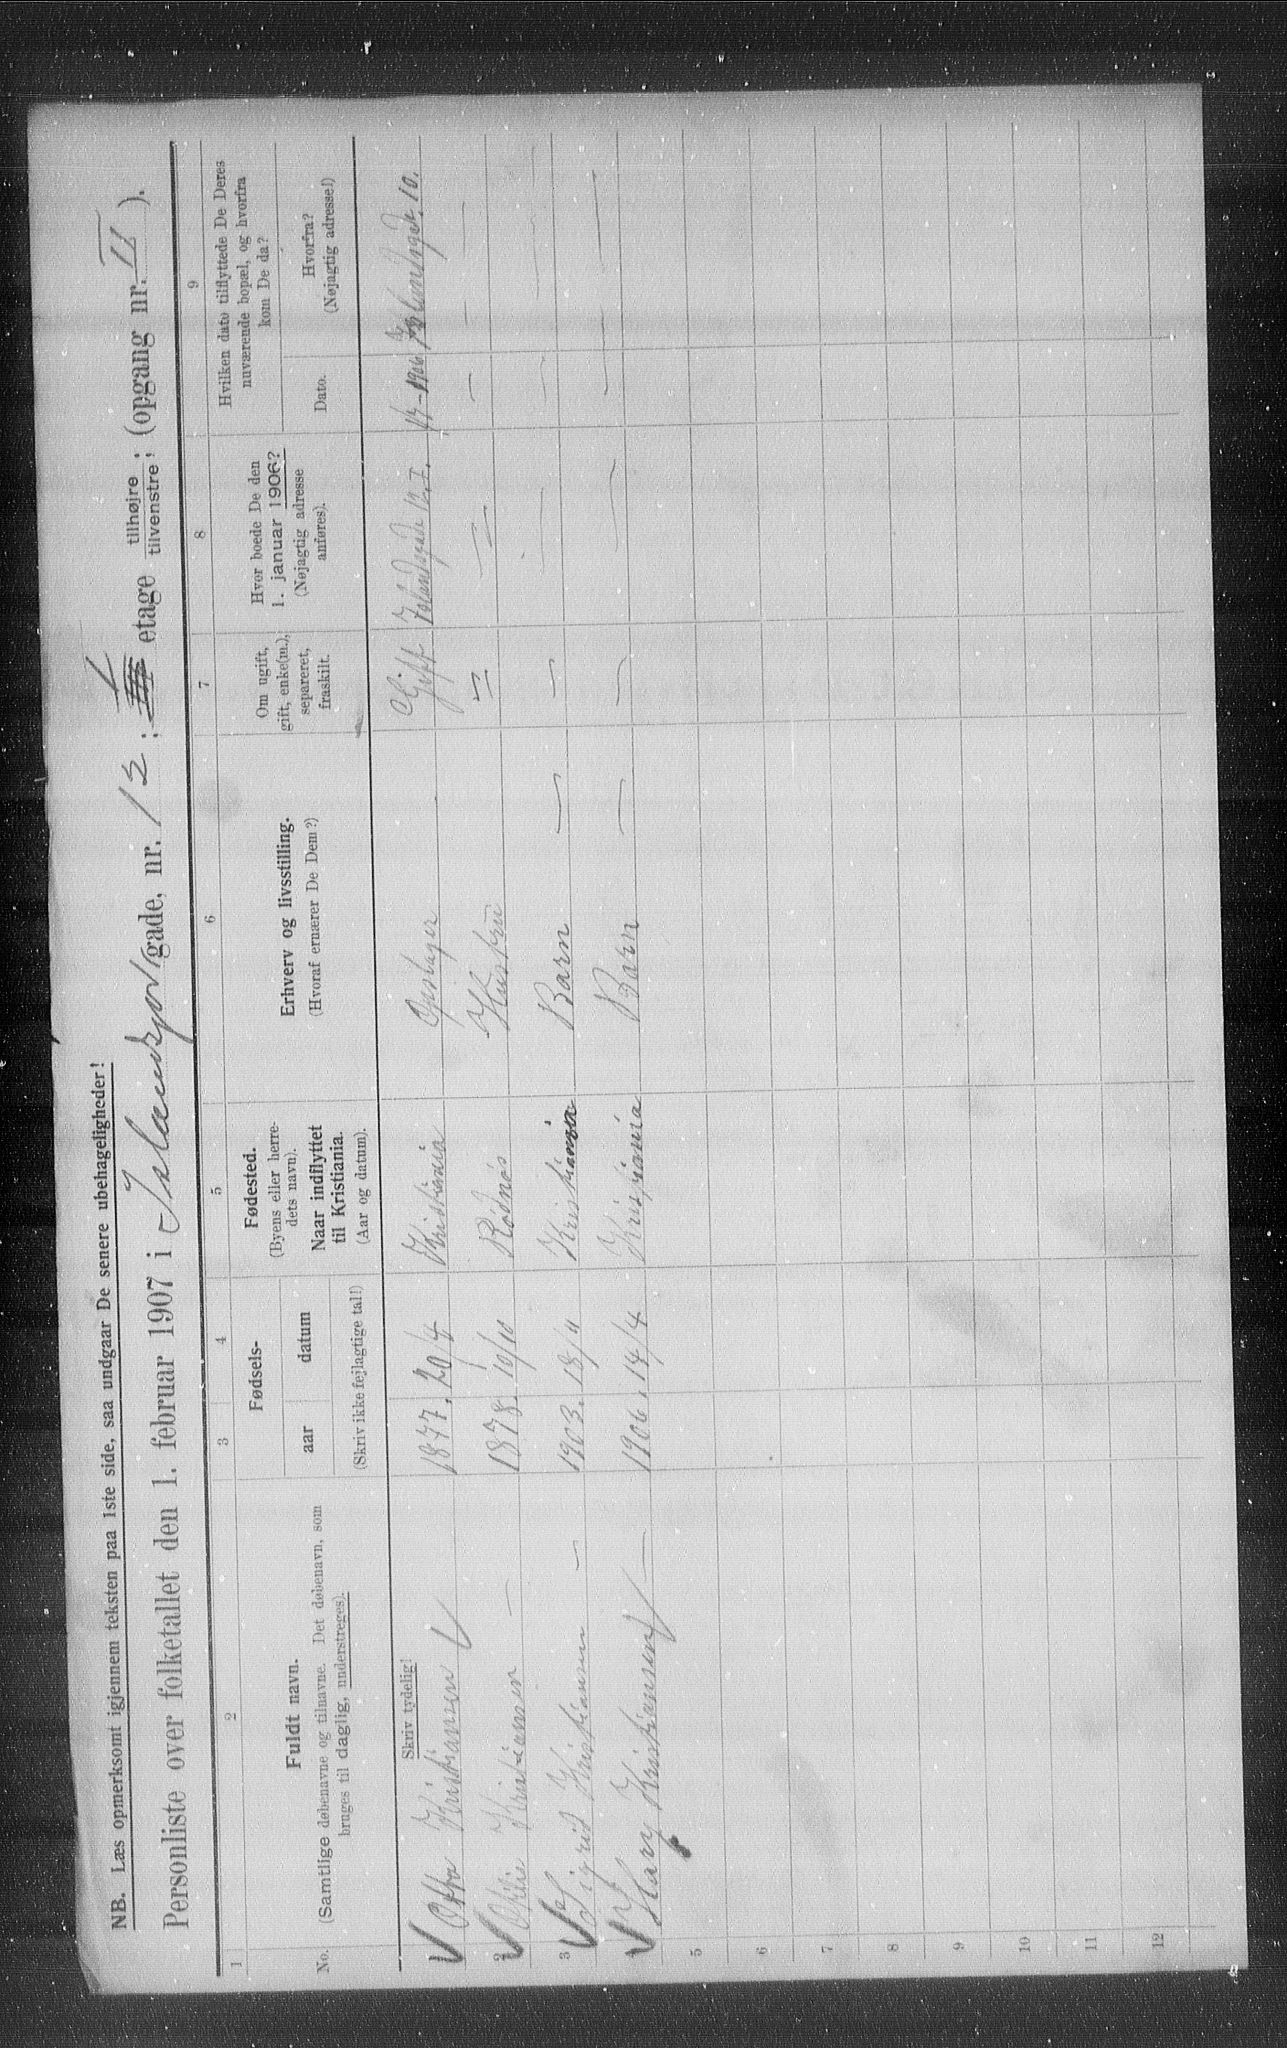 NB. Læs opmerksomt igjennem teksten paa 1ste side, saa undgaar De senere ubehageligheder!
Personliste over folketallet den 1. februar 1907 i gade, nr. 12; etage tilhøjre; tilvenstre; (opgang nr. II ).
1 2 3 4 5 6 7 8 9
No.
Fuldt navn.
(Samtlige døbenavne og tilnavne. Det døbenavn, som
bruges til daglig, understreges).
Fødsels-
aar datum
(Skriv ikke fejlagtige tal!)
Fødested.
(Byens eller herre-
dets navn).
Naar indflyttet
til Kristiania.
(Aar og datum).
Erhverv og livsstilling.
(Hvoraf ernærer De Dem?)
Om ugift,
gift, enke(m.),
separeret,
fraskilt.
Hvor boede De den
1. januar 1906?
(Nøjagtig adresse
anføres).
Hvilken dato tilflyttede De Deres
nuværende bopæl, og hvorfra
kom De da?
Dato.
Hvorfra?
(Nøjagtig adresse!)
Skriv tydelig!
Kristiansen 1877. 20/4 Kristiania Gift Islandsgade 12. I. 10.
2 Kristiansen — 1878. 10/10 Rødnes Hustru — — — —
3 Sigrid Kristiansen — 1903. 18/11 Kristiania Barn — — — — —
Harry Kristiansen — 1906. 14/4 Kristiania Barn — — — — —
5
6
7
8
9
10
11
12